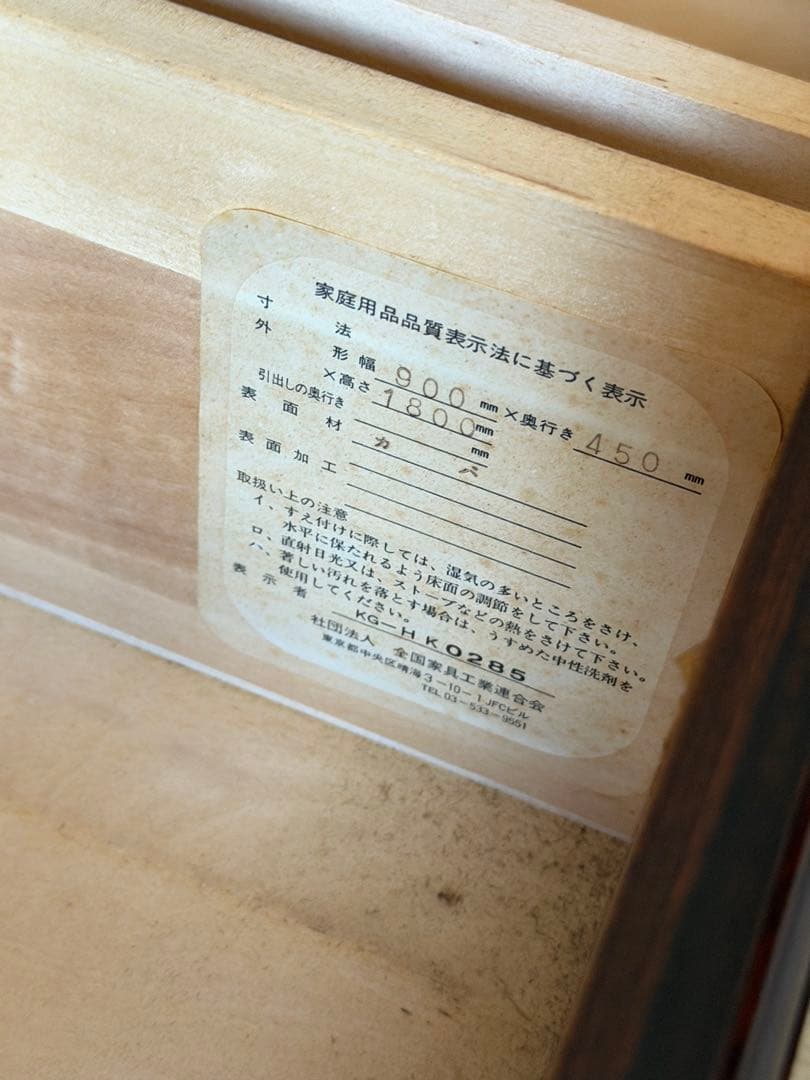 家庭用品品質表示法に基づく表示
寸　　　法
外　　　形 幅 900 mm × 奥行き 450 mm
×高さ 1800 mm
引出しの奥行き mm
表　面　材 カバ
表 面 加 工
取扱い上の注意
イ、すえ付けに際しては、湿気の多いところをさけ、
水平に保たれるよう床面の調節をして下さい。
ロ、直射日光又は、ストーブなどの熱をさけて下さい。
ハ、著しい汚れを落とす場合は、うすめた中性洗剤を
使用してください。
表　示　者
KG-HK0285
社団法人　全国家具工業連合会
東京都中央区晴海3-10-1JFCビル
TEL 03-533-9551